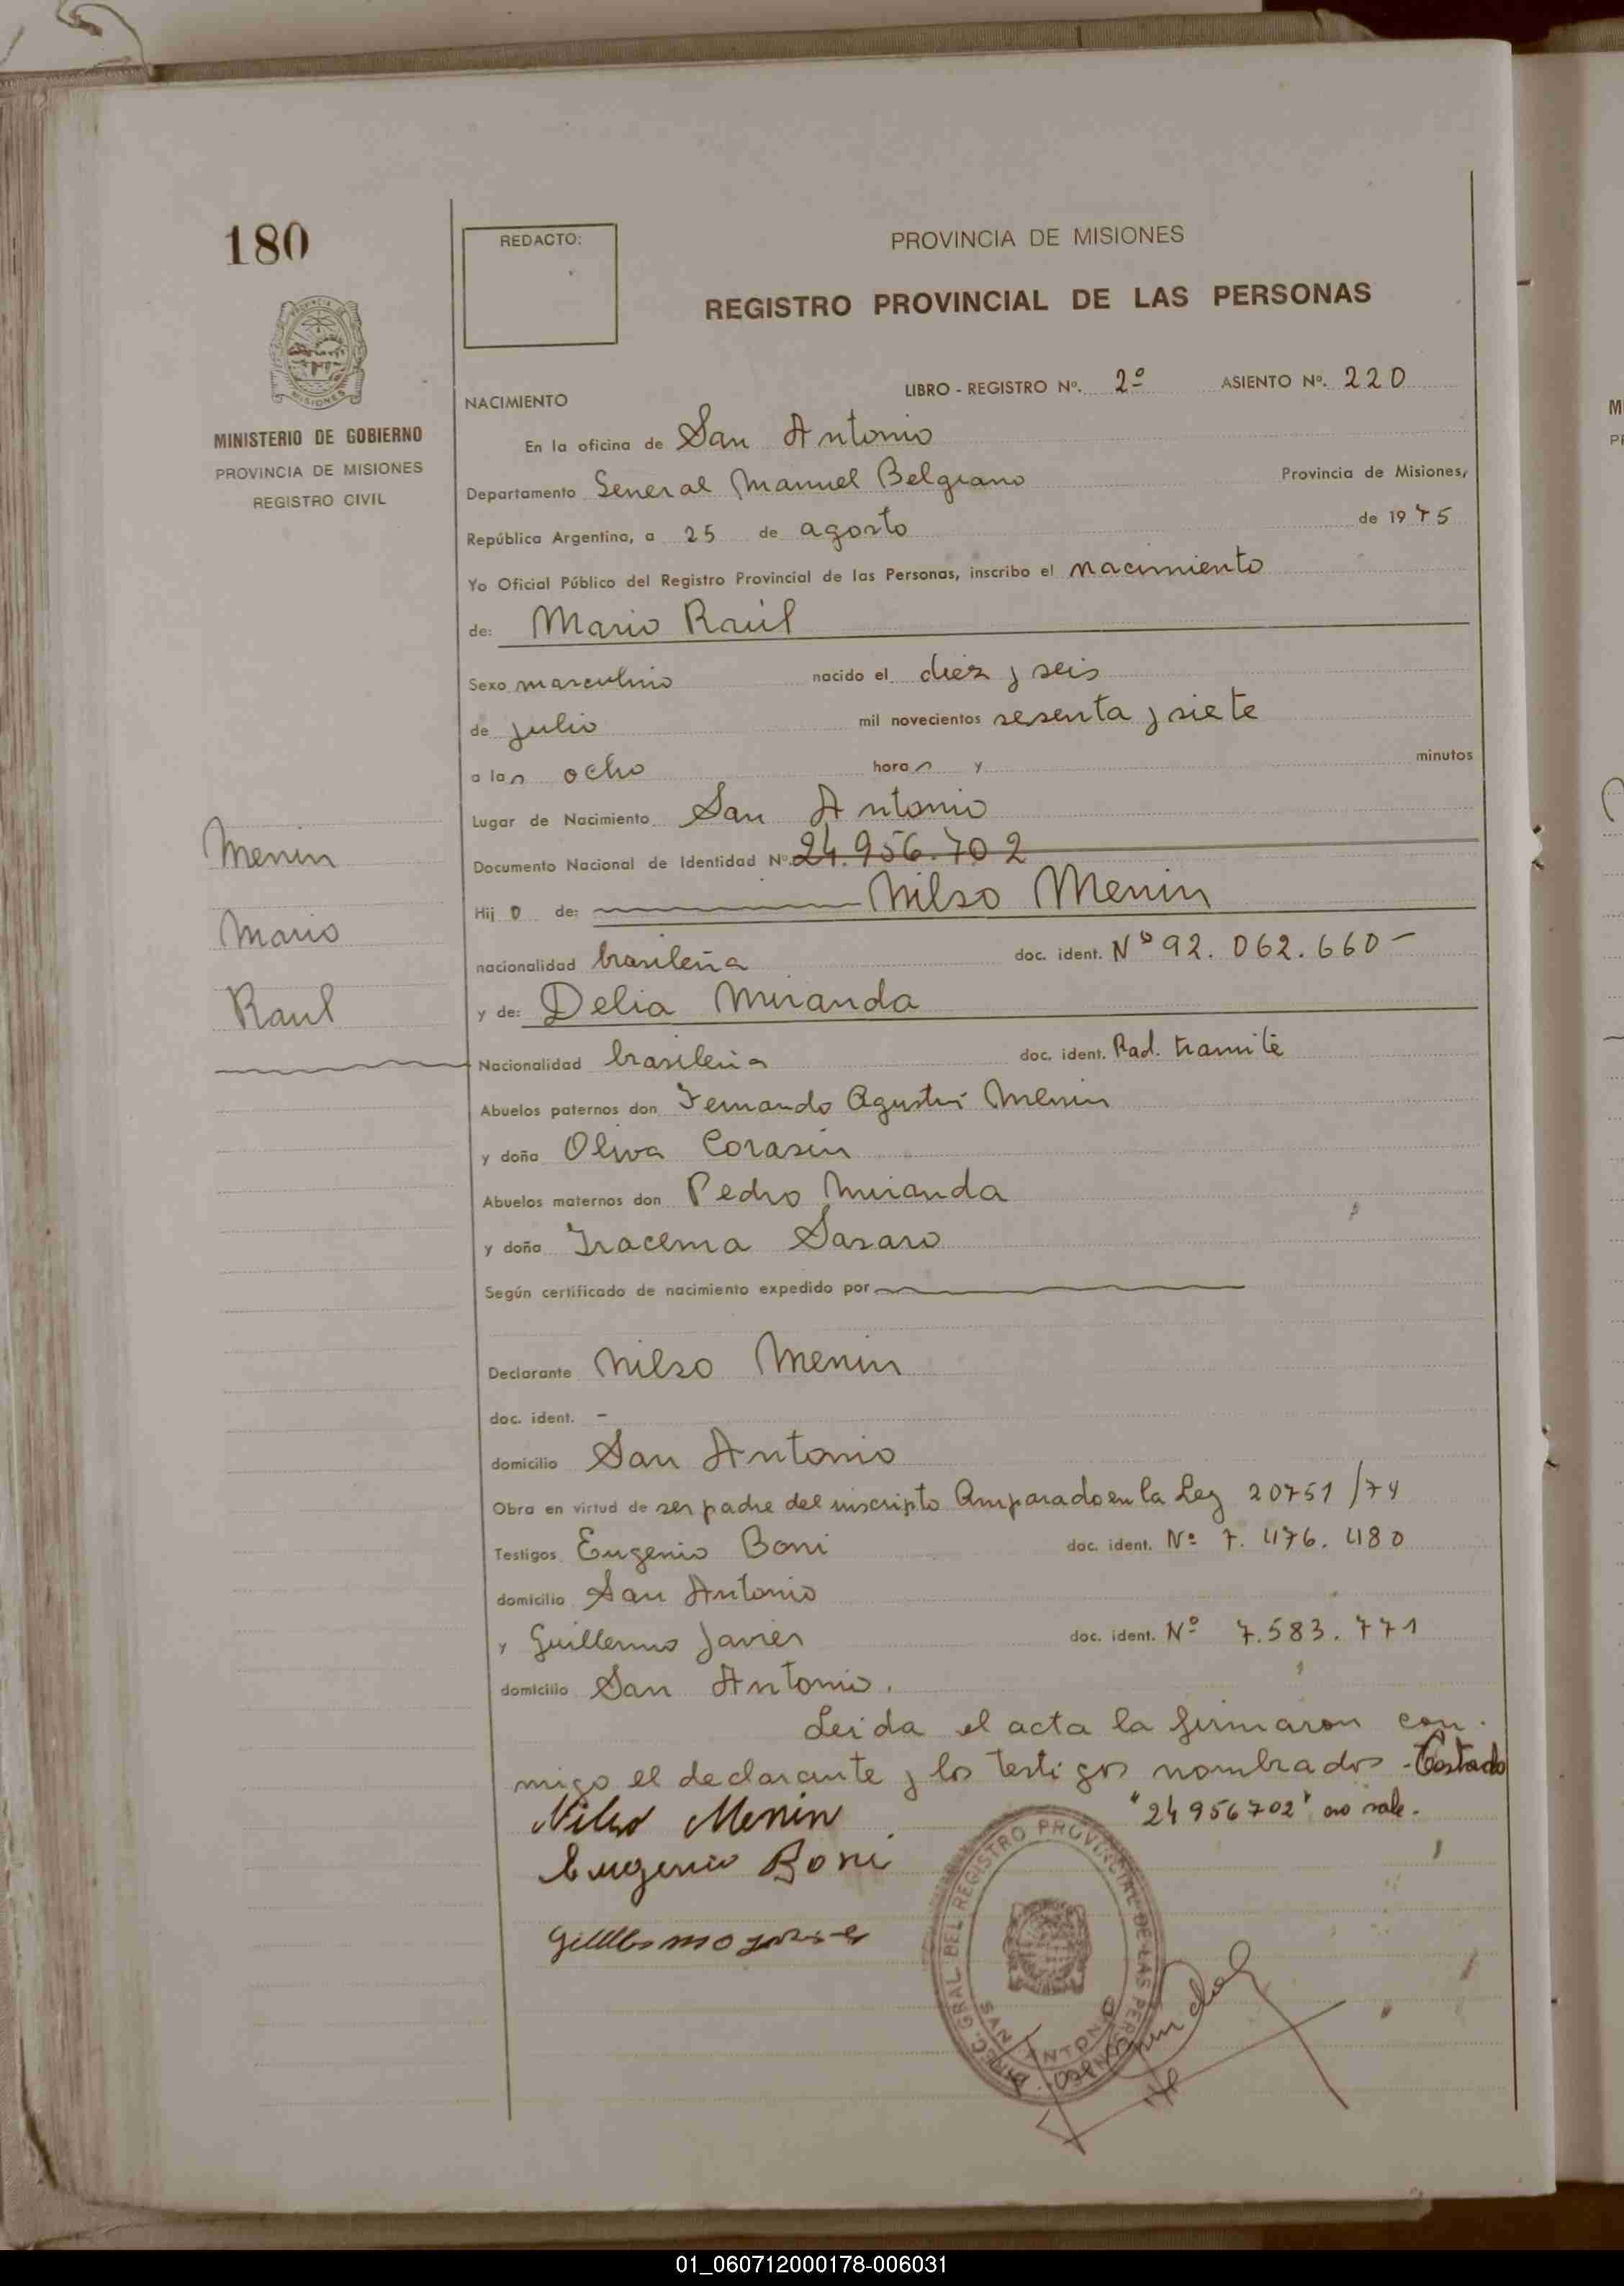 180
REDACTO:
PROVINCIA DE MISIONES
REGISTRO PROVINCIAL DE LAS PERSONAS
MINISTERIO DE GOBIERNO
PROVINCIA DE MISIONES
REGISTRO CIVIL
NACIMIENTO
LIBRO - REGISTRO Nº. 2º ASIENTO Nº. 220
En la oficina de San Antonio
Departamento General Manuel Belgrano Provincia de Misiones,
República Argentina, a 25 de agosto de 1975
Yo Oficial Público del Registro Provincial de las Personas, inscribo el nacimiento
de: Mario Raúl
Sexo masculino nacido el diez y seis
de julio mil novecientos sesenta y siete
a las ocho horas y minutos
Lugar de Nacimiento San Antonio
Documento Nacional de Identidad Nº 24.956.702
Hijo de: Nilso Menin
nacionalidad brasileña doc. ident. Nº 92.062.660-
y de: Delia Miranda
Nacionalidad brasileña doc. ident. Rad. tramite
Abuelos paternos don Fernando Agustin Menin
y doña Oliva Corasin
Abuelos maternos don Pedro Miranda
y doña Iracema Sasaro
Según certificado de nacimiento expedido por
Declarante Nilso Menin
doc. ident. -
domicilio San Antonio
Obra en virtud de ser padre del inscripto Amparado en la Ley 20751/74
Testigos Eugenio Boni doc. ident. Nº 7.476.480
domicilio San Antonio
y Guillermo Javier doc. ident. Nº 7.583.771
domicilio San Antonio.
Leida el acta la firmaron con-
migo el declarante y los testigos nombrados - Testado
"24956702" no vale.
Menin
Mario
Raul
Nilso Menin
Eugenio Boni
DIREC. GRAL. DEL REGISTRO PROVINCIAL DE LAS PERSONAS
SAN ANTONIO
PROVINCIA DE
MISIONES
01_060712000178-006031